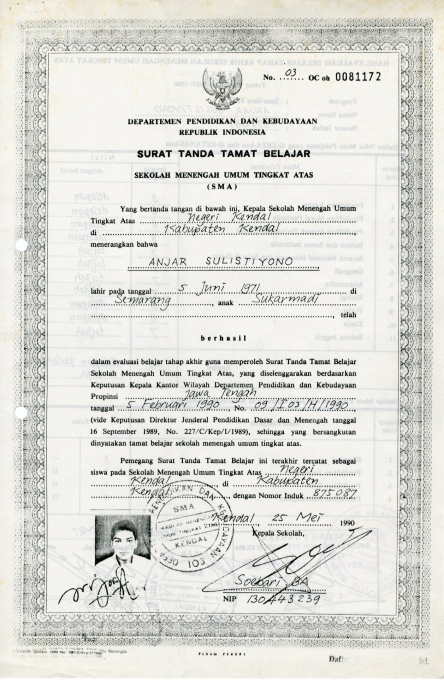 No. 03 OC oh 0081172
DEPARTEMEN PENDIDIKAN DAN KEBUDAYAAN
REPUBLIK INDONESIA
SURAT TANDA TAMAT BELAJAR
SEKOLAH MENENGAH UMUM TINGKAT ATAS
(SMA)
Yang bertanda tangan di bawah ini, Kepala Sekolah Menengah Umum
Tingkat Atas Negeri Kendal
di Kabupaten Kendal
menerangkan bahwa
ANJAR SULISTIYONO
lahir pada tanggal 5 Juni 1971 di
Semarang, anak Sukarmadi
, telah
berhasil
dalam evaluasi belajar tahap akhir guna memperoleh Surat Tanda Tamat Belajar
Sekolah Menengah Umum Tingkat Atas, yang diselenggarakan berdasarkan
Keputusan Kepala Kantor Wilayah Departemen Pendidikan dan Kebudayaan
Propinsi Jawa Tengah
tanggal 5 Februari 1990 No. 09/I03/H/1990,
(vide Keputusan Direktur Jenderal Pendidikan Dasar dan Menengah tanggal
16 September 1989, No. 227/C/Kep/I/1989), sehingga yang bersangkutan
dinyatakan tamat belajar sekolah menengah umum tingkat atas.
Pemegang Surat Tanda Tamat Belajar ini terakhir tercatat sebagai
siswa pada Sekolah Menengah Umum Tingkat Atas Negeri
Kendal di Kabupaten
Kendal, dengan Nomor Induk 875087
Kendal 25 Mei 1990
Kepala Sekolah,
SMA
KENDAL
Soekari BA
NIP 130443239